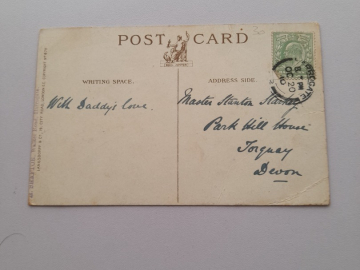 POST CARD
WRITING SPACE.
ADDRESS SIDE.
With Daddy's Love.
Master Stanton
Park Hill House
Torquay
Devon
OC 20